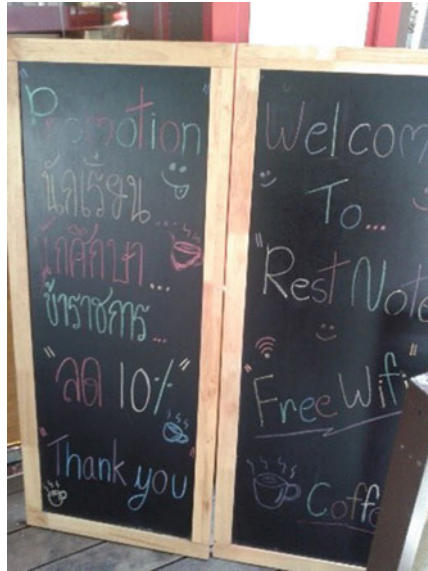 "Promotion"
นักเรียน...
นักศึกษา...
ข้าราชการ...
"ลด 10%"
"Thank you"
Welcom
To...
"Rest Note
Free Wifi
Coffe